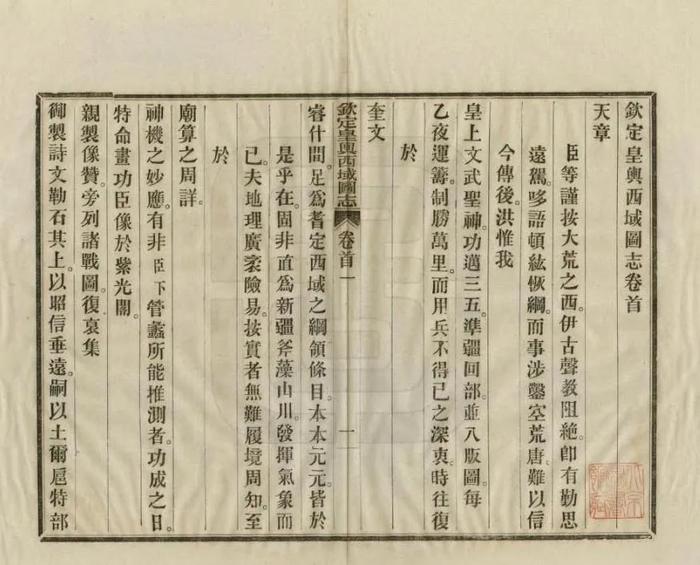 欽定皇輿西域圖志卷首
天章
臣等謹按大荒之西伊古聲教阻絕卽有勤思
遠駕哆語頓紘恢綱而事涉鑿空荒唐難以信
今傳後洪惟我
皇上文武聖神功邁三五準疆回部並入版圖每
乙夜運籌制勝萬里而用兵不得已之深衷時往復
於
奎文
欽定皇輿西域圖志 卷首一 一
睿什間足爲耆定西域之綱領條目本本元元皆於
是乎在固非直爲新疆斧藻山川發揮氣象而
已夫地理廣袤險易按實者無難履境周知至
於
廟算之周詳
神機之妙應有非臣下管蠡所能推測者功成之日
特命畫功臣像於紫光閣
親製像贊旁列諸戰圖復裒集
御製詩文勒石其上以昭信垂遠嗣以土爾扈特部